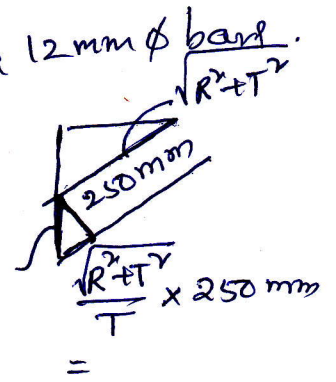 12mm ϕ bars.
√R²+T²
250mm
√R²+T²/T × 250 mm
=